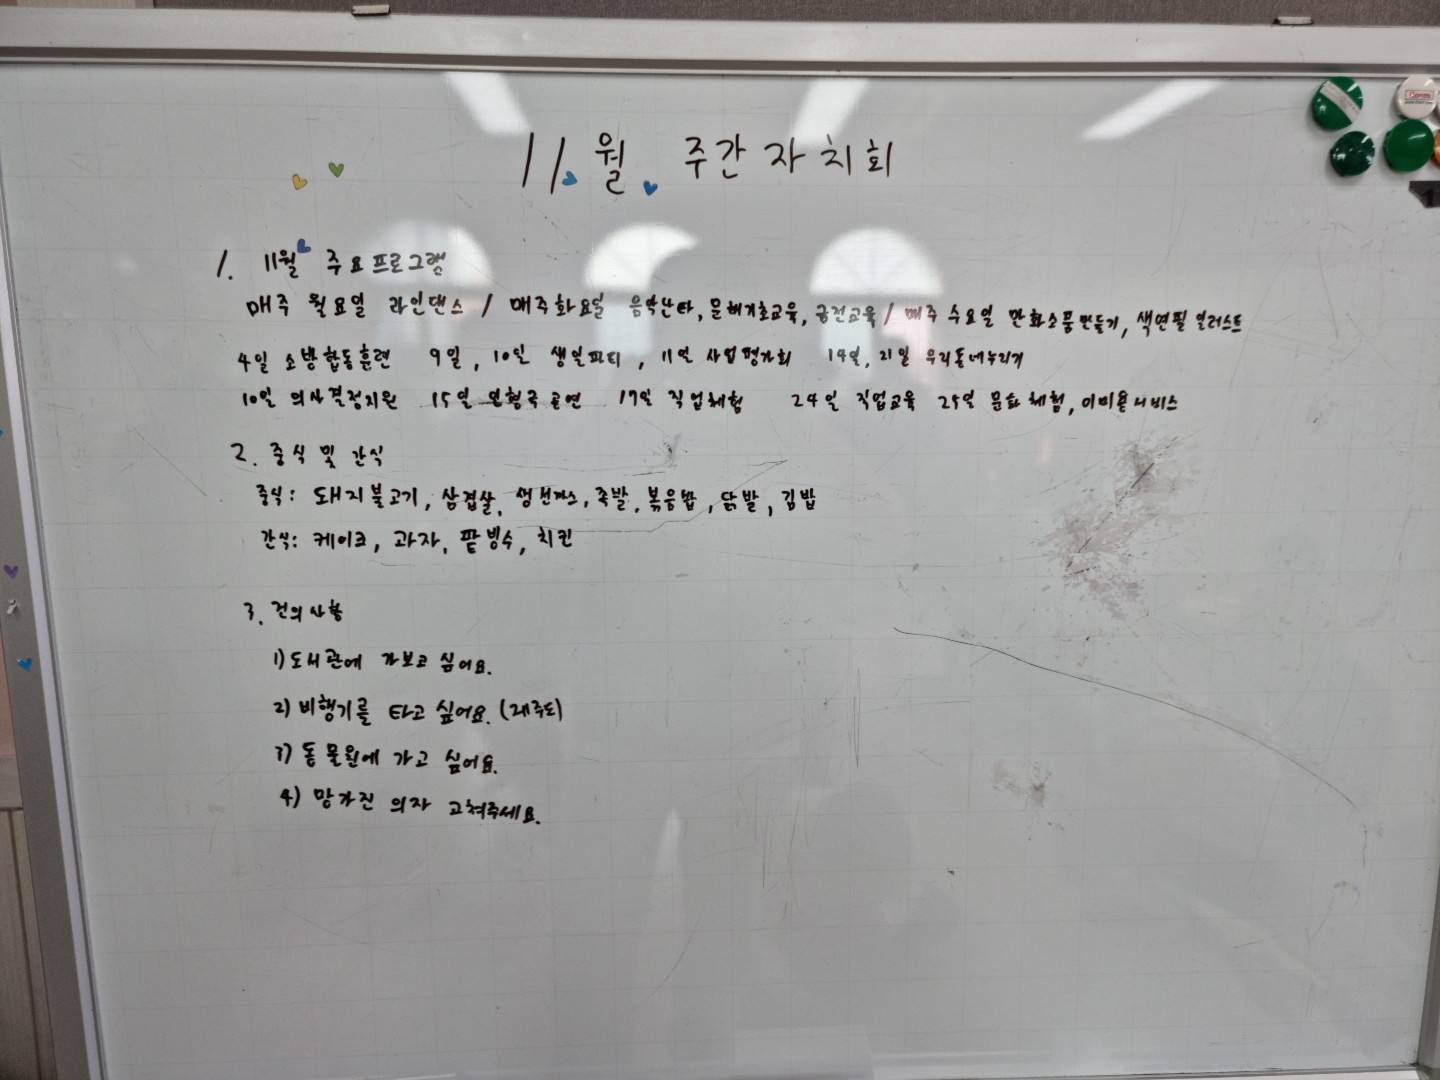 11월 주간자치회
1. 11월 주요프로그램
매주 월요일 라인댄스 / 매주화요일 음악난타, 문해기초교육, 금전교육 / 매주 수요일 만화소품만들기, 색연필 일러스트
4일 소방합동훈련 9일, 10일 생일파티, 11일 사업평가회 14일, 21일 우리동네누리기
10일 의사결정지원 15일 인형극공연 17일 직업체험 24일 직업교육 25일 문화체험, 이미용서비스
2. 중식 및 간식
중식: 돼지불고기, 삼겹살, 생선까스, 족발, 볶음밥, 닭발, 김밥
간식: 케이크, 과자, 팥빙수, 치킨
3. 건의사항
1) 도서관에 가보고 싶어요.
2) 비행기를 타고 싶어요. (제주도)
3) 동물원에 가고 싶어요.
4) 망가진 의자 고쳐주세요.